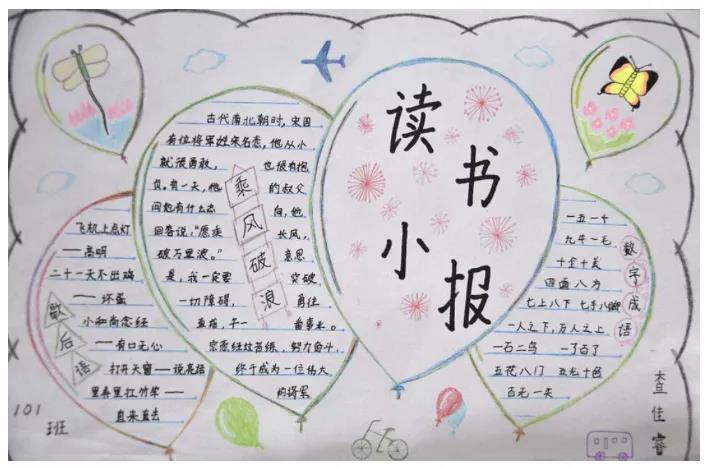 读书小报
古代南北朝时,宋国
有位将军姓宗名悫,他从小
就很勇敢,也很有抱
负。有一天,他的叔父
问他有什么志向,他
回答说,"愿乘长风,
破万里浪。"意思
是,我一定要突破
一切障碍,勇往
直前,干一番事业。
宗悫经过苦练,努力奋斗,
终于成为一位伟大
的将军
乘风破浪
飞机上点灯
——高明
二十一天不出鸡
——坏蛋
小和尚念经
——有口无心
打开天窗——说亮话
里弄里扛竹竿——
直来直去
歇后语
一五一十
九牛一毛
十全十美
四面八方
七上八下 七手八脚
一人之下,万人之上
一石二鸟 一了百了
五花八门 五光十色
百无一失
数字成语
101
班
查佳睿